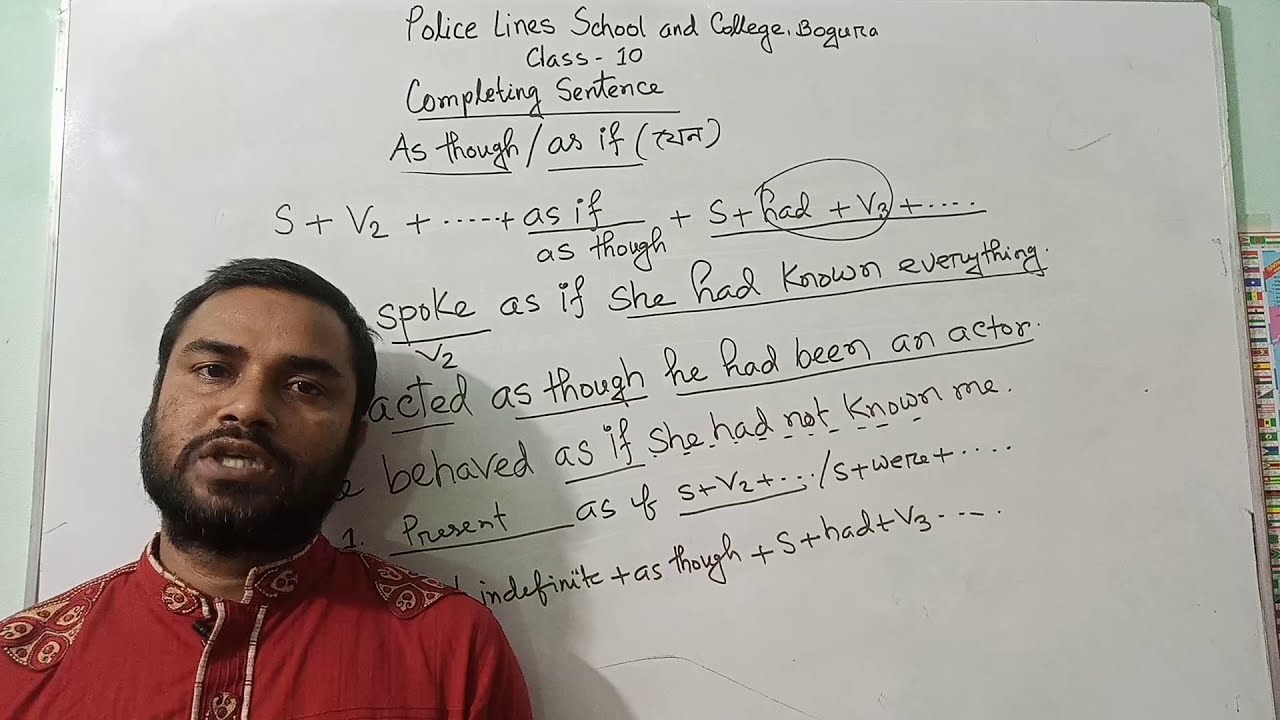 Police Lines School and College, Bogura
Class - 10
Completing Sentence
As though / as if (যেন)
S + V2 + ..... + as if + S + had + V3 + ....
as though
spoke as if she had known everything.
V2
acted as though he had been an actor.
behaved as if she had not known me.
1. Present as if S + V2 + ... / S + were + ....
indefinite + as though + S + had + V3 ....